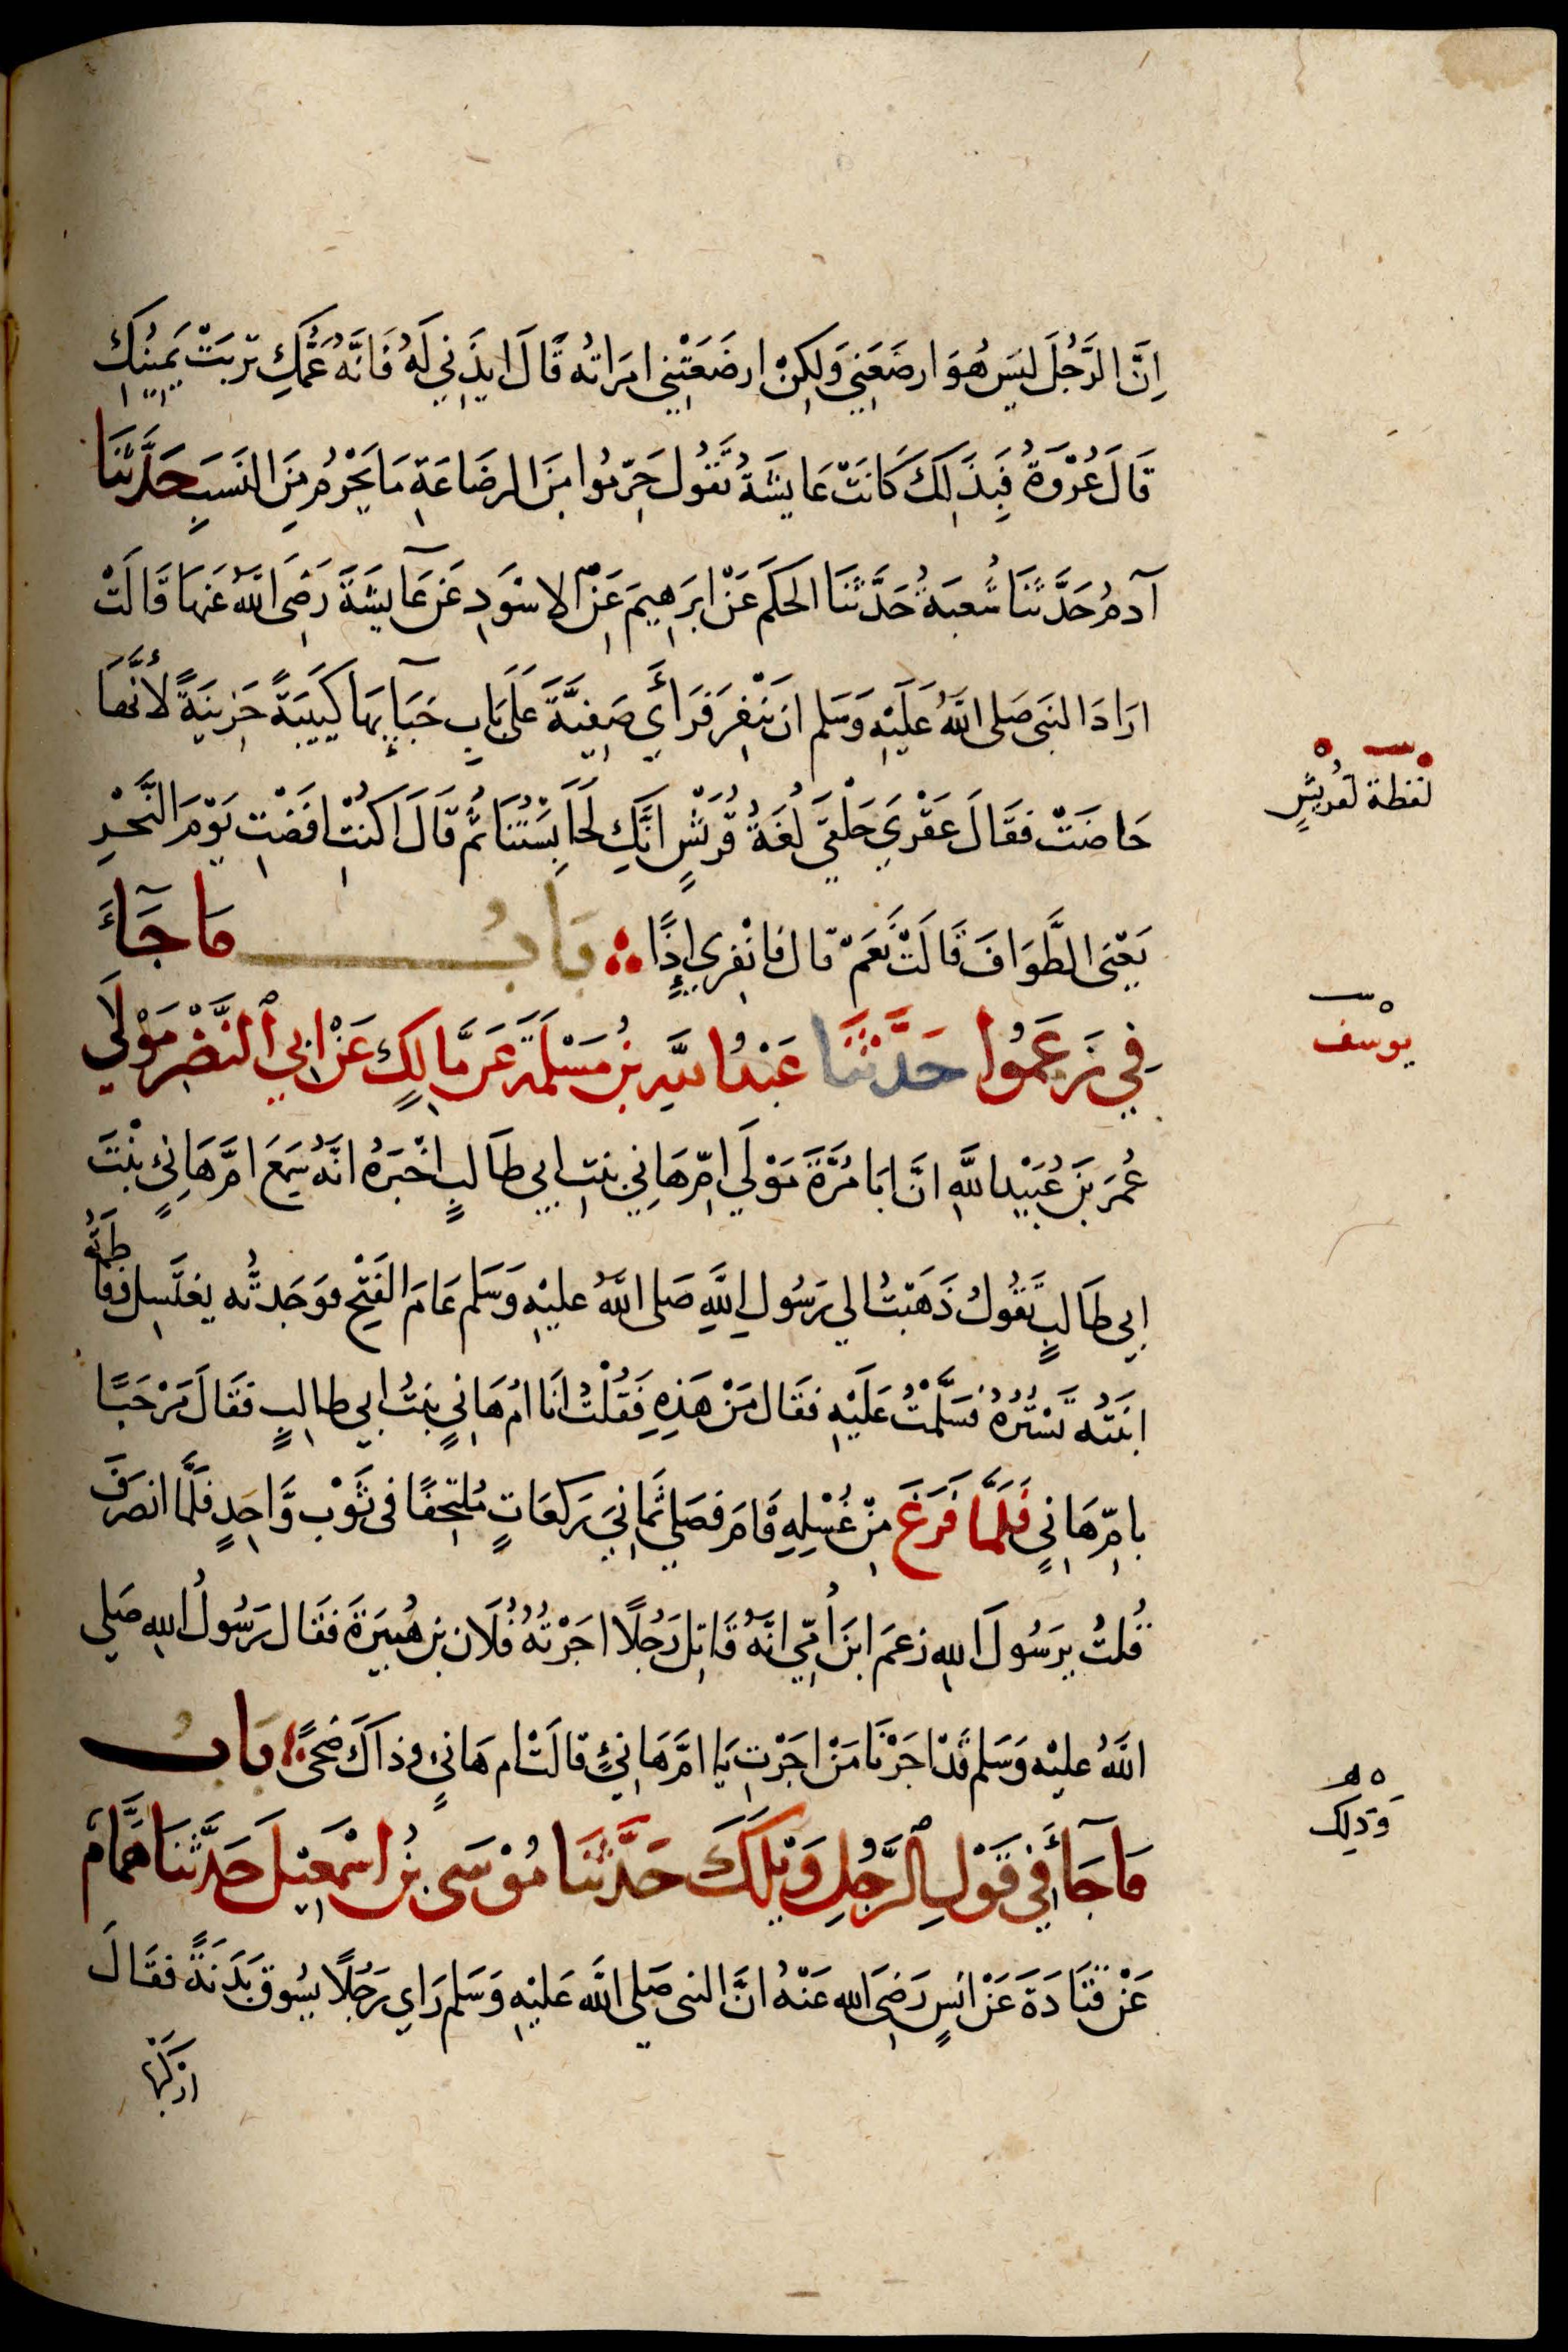 اِنَّ الرَّجُلَ لَيسَ هُوَ ارضَعَنِي وَلكِنْ ارضَعَتْنِي امرَاتُه قَالَ ايذَنِي لَهُ فَانَّهُ عَمُّكِ تَرِبَتْ يَمِينُكِ
قَالَ عُرْوَةُ فَبِذَلِكَ كَانَتْ عَايِشَةُ تَقُول حَرِّمُوا مِنَ الرضَاعَةِ مَا يَحْرُمُ مِنَ النَسَبِ حَدَّثَنَا
آدمُ حَدَّثَنَا شُعبَةُ حَدَّثَنَا الحَكَم عَنْ ابرَهِيمَ عَنِ الاسْوَدِ عَن عَايِشَةَ رَضِيَ اللهُ عَنهَا قَالَتْ
ارَادَ النبَي صَلى اللهُ عَلَيْهِ وَسَلم ان يَنْفِرَ فَرَأَي صَفِيَّةَ عَلَى بَابِ خِبَايِهَا كَيِيبَةً حَزِينَةً لأنَّهَا
حَاضَتْ فقَالَ عَقْرَي حَلْقَي لُغَةُ قُرَيْشٍ انَّكِ لَحَابِسَتُنَا ثُم قَالَ اكُنْتِ افَضْتِ يَوْمَ النَّحْرِ
يَعْنِي الطَّوَافَ قَالَتْ نَعَمْ قال فانْفِرِي إِذًا بَابُ مَا جَآءَ
فِي زَعَمُوا حَدَّثَنَا عَبْدُ اللهِ بنُ مَسْلَمَةَ عَن مَّالِكٍ عَنْ ابِي النَّضْرِ مَوْلَي
عُمَرَ بنِ عُبَيْدِ اللَّهِ انَّ ابَا مُرَّةَ مَوْلَي امِّ هَانِي بنتِ ابِي طَالبٍ اخْبَرَهُ انَّهُ سَمِعَ امَّ هَانِئٍ بنْتَ
ابِي طَالبٍ تَقُولُ ذَهَبْتُ الي رَسُولِ اللَّهِ صَلى اللَّهُ عليْهِ وَسَلم عَامَ الفَتْحِ فوَجَدتُّه يغتَسِل وفاطمَةُ
ابنَتُه تَسْتُرُهُ فسَلَّمْتُ عَلَيْهِ فقَال مَنْ هَذِهِ فَقُلْتُ انَا امُ هَانِيٍ بنتُ ابي طالِبٍ فقَالَ مَرْحَبًا
بامِّ هَانِيٍ فَلَمَّا فَرَغَ مِنْ غُسْلِهِ قَامَ فصَلي ثَمَانِيَ رَكعَاتٍ مُلتَحِفًا فى ثَوْب وَّاحِدٍ فلَمَّا انصَرَفَ
قُلتُ يرَسُولَ اللهِ زعَمَ ابنُ امِّي انَّهُ قَاتِل رَجُلًا اجَرْتُهُ فُلَان بن هُبَيرَةَ فقَال رَسُولُ اللهِ صَلي
اللَّهُ عليْهِ وَسَلم قَدْ اجَرْنَا مَنْ اجَرْتِ يَا امَّ هَانِئٍ قالَتْ ام هَانِيٍ وذاكَ ضُحًي بَابُ
مَا جَآءَ فِي قَوْلِ الرَّجُلِ وَيْلَكَ حَدَّثَنَا مُوْسَى بنُ اسْمَعِيْلَ حَدَّثَنَا هَمَّامٌ
عَنْ قَتَادَةَ عَنْ انَسٍ رَضِيَ الله عَنْهُ انَّ النبى صَلي اللَّه عَليْهِ وَسَلم رَاي رَجُلًا يسُوق بَدَنَةً فقَالَ
ارْكَبْهَا
لفظة لقُريشٍ
يوسف
وَذلِكَ